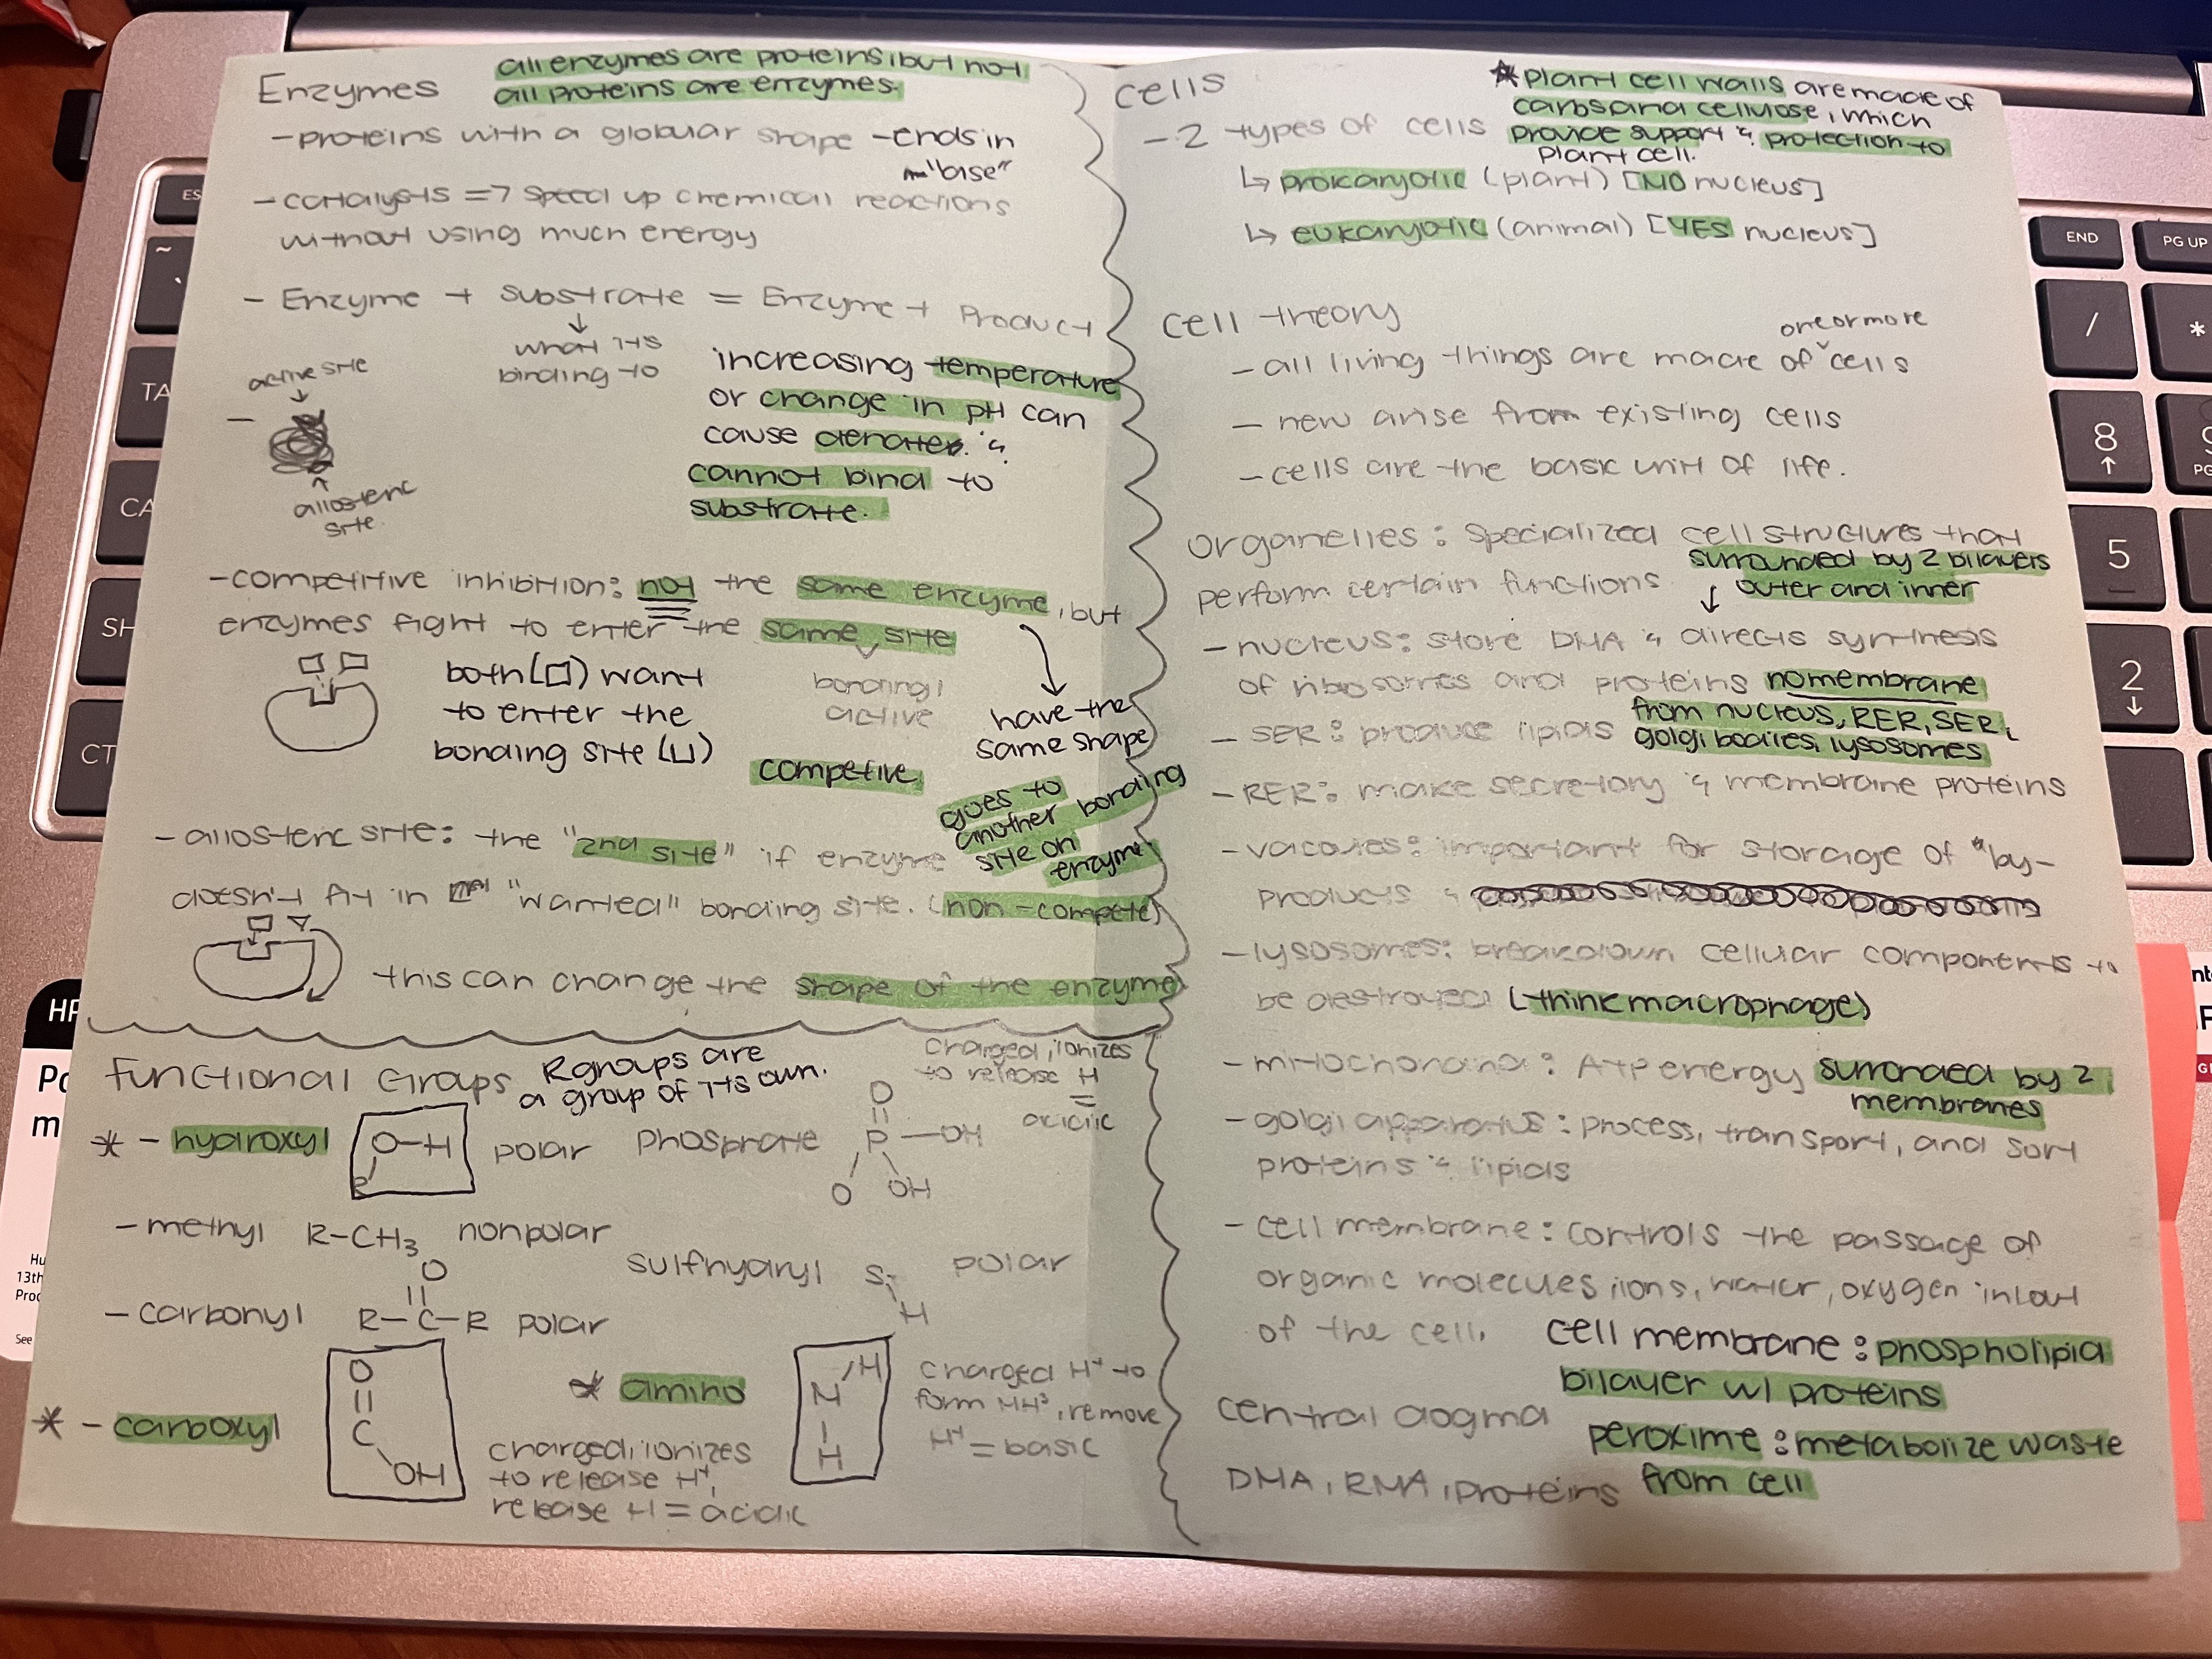 Enzymes
all enzymes are proteins, but not
all proteins are enzymes.
- proteins with a globular shape - ends in
"base"
- catalysts => speed up chemical reactions
without using much energy
- Enzyme + substrate = Enzyme + Product
active site
what its
binding to
allosteric
site.
increasing temperature
or change in pH can
cause denatee. &
cannot bind to
substrate.
- competitive inhibition: not the same enzyme, but
enzymes fight to enter the same site
bonding/
active
both (□) want
to enter the
bonding site (⊔)
competive
have the
same shape
- allosteric site: the "2nd site" if enzyme
doesn't fit in "wanted" bonding site. (non-compete)
goes to
another bonding
site on
enzyme
this can change the shape of the enzyme
Functional Groups
R groups are
a group of its own.
* - hydroxyl
R O-H
polar
- methyl R-CH3 nonpolar
- carbonyl R-C-R polar
O
* - carboxyl
O
C
OH
charged, ionizes
to release H+,
release H = acidic
phosphate
O
O P - OH
OH
charged, ionizes
to release H
= acidic
sulfhydryl S
H
polar
* amino
H
N
H
charged H+ to
form NH3, remove
H+ = basic
Cells
* plant cell walls are made of
carbs and cellulose, which
provide support & protection to
plant cell.
- 2 types of cells
↳ prokaryotic (plant) [NO nucleus]
↳ eukaryotic (animal) [YES nucleus]
Cell theory
- all living things are made of cells
one or more
- new arise from existing cells
- cells are the basic unit of life.
Organelles: specialized cell structures that
perform certain functions
surrounded by 2 bilayers
↳ outer and inner
- nucleus: store DNA & directs synthesis
of ribosomes and proteins no membrane
- SER: produce lipids
from nucleus, RER, SER,
golgi bodies, lysosomes
- RER: make secretory & membrane proteins
- vacuoles: important for storage of "by-
products &
- lysosomes: breakdown cellular components to
be destroyed (think macrophage)
- mitochondria: ATP energy surrounded by 2
membranes
- golgi apparatus: process, transport, and sort
proteins & lipids
- cell membrane: controls the passage of
organic molecules, ions, water, oxygen in/out
of the cell.
cell membrane: phospholipid
bilayer w/ proteins
Central dogma
DNA, RNA, proteins
peroxime: metabolize waste
from cell
HP
CT
SH
CA
TA
~
ES
END
PG UP
/
*
8
5
2